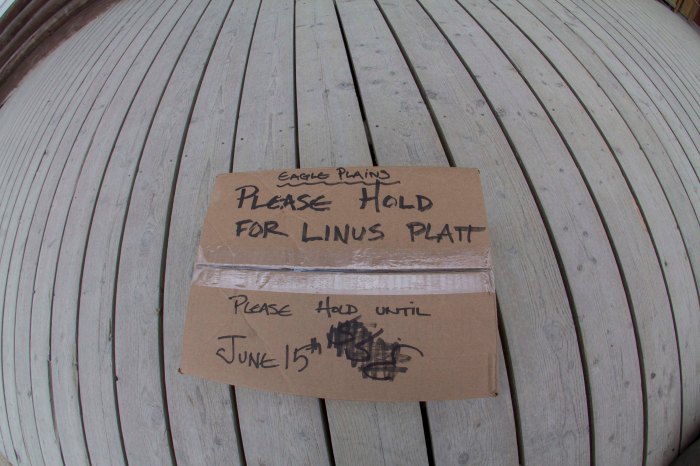 EAGLE PLAINS
PLEASE HOLD
FOR LINUS PLATT
PLEASE HOLD UNTIL
JUNE 15th